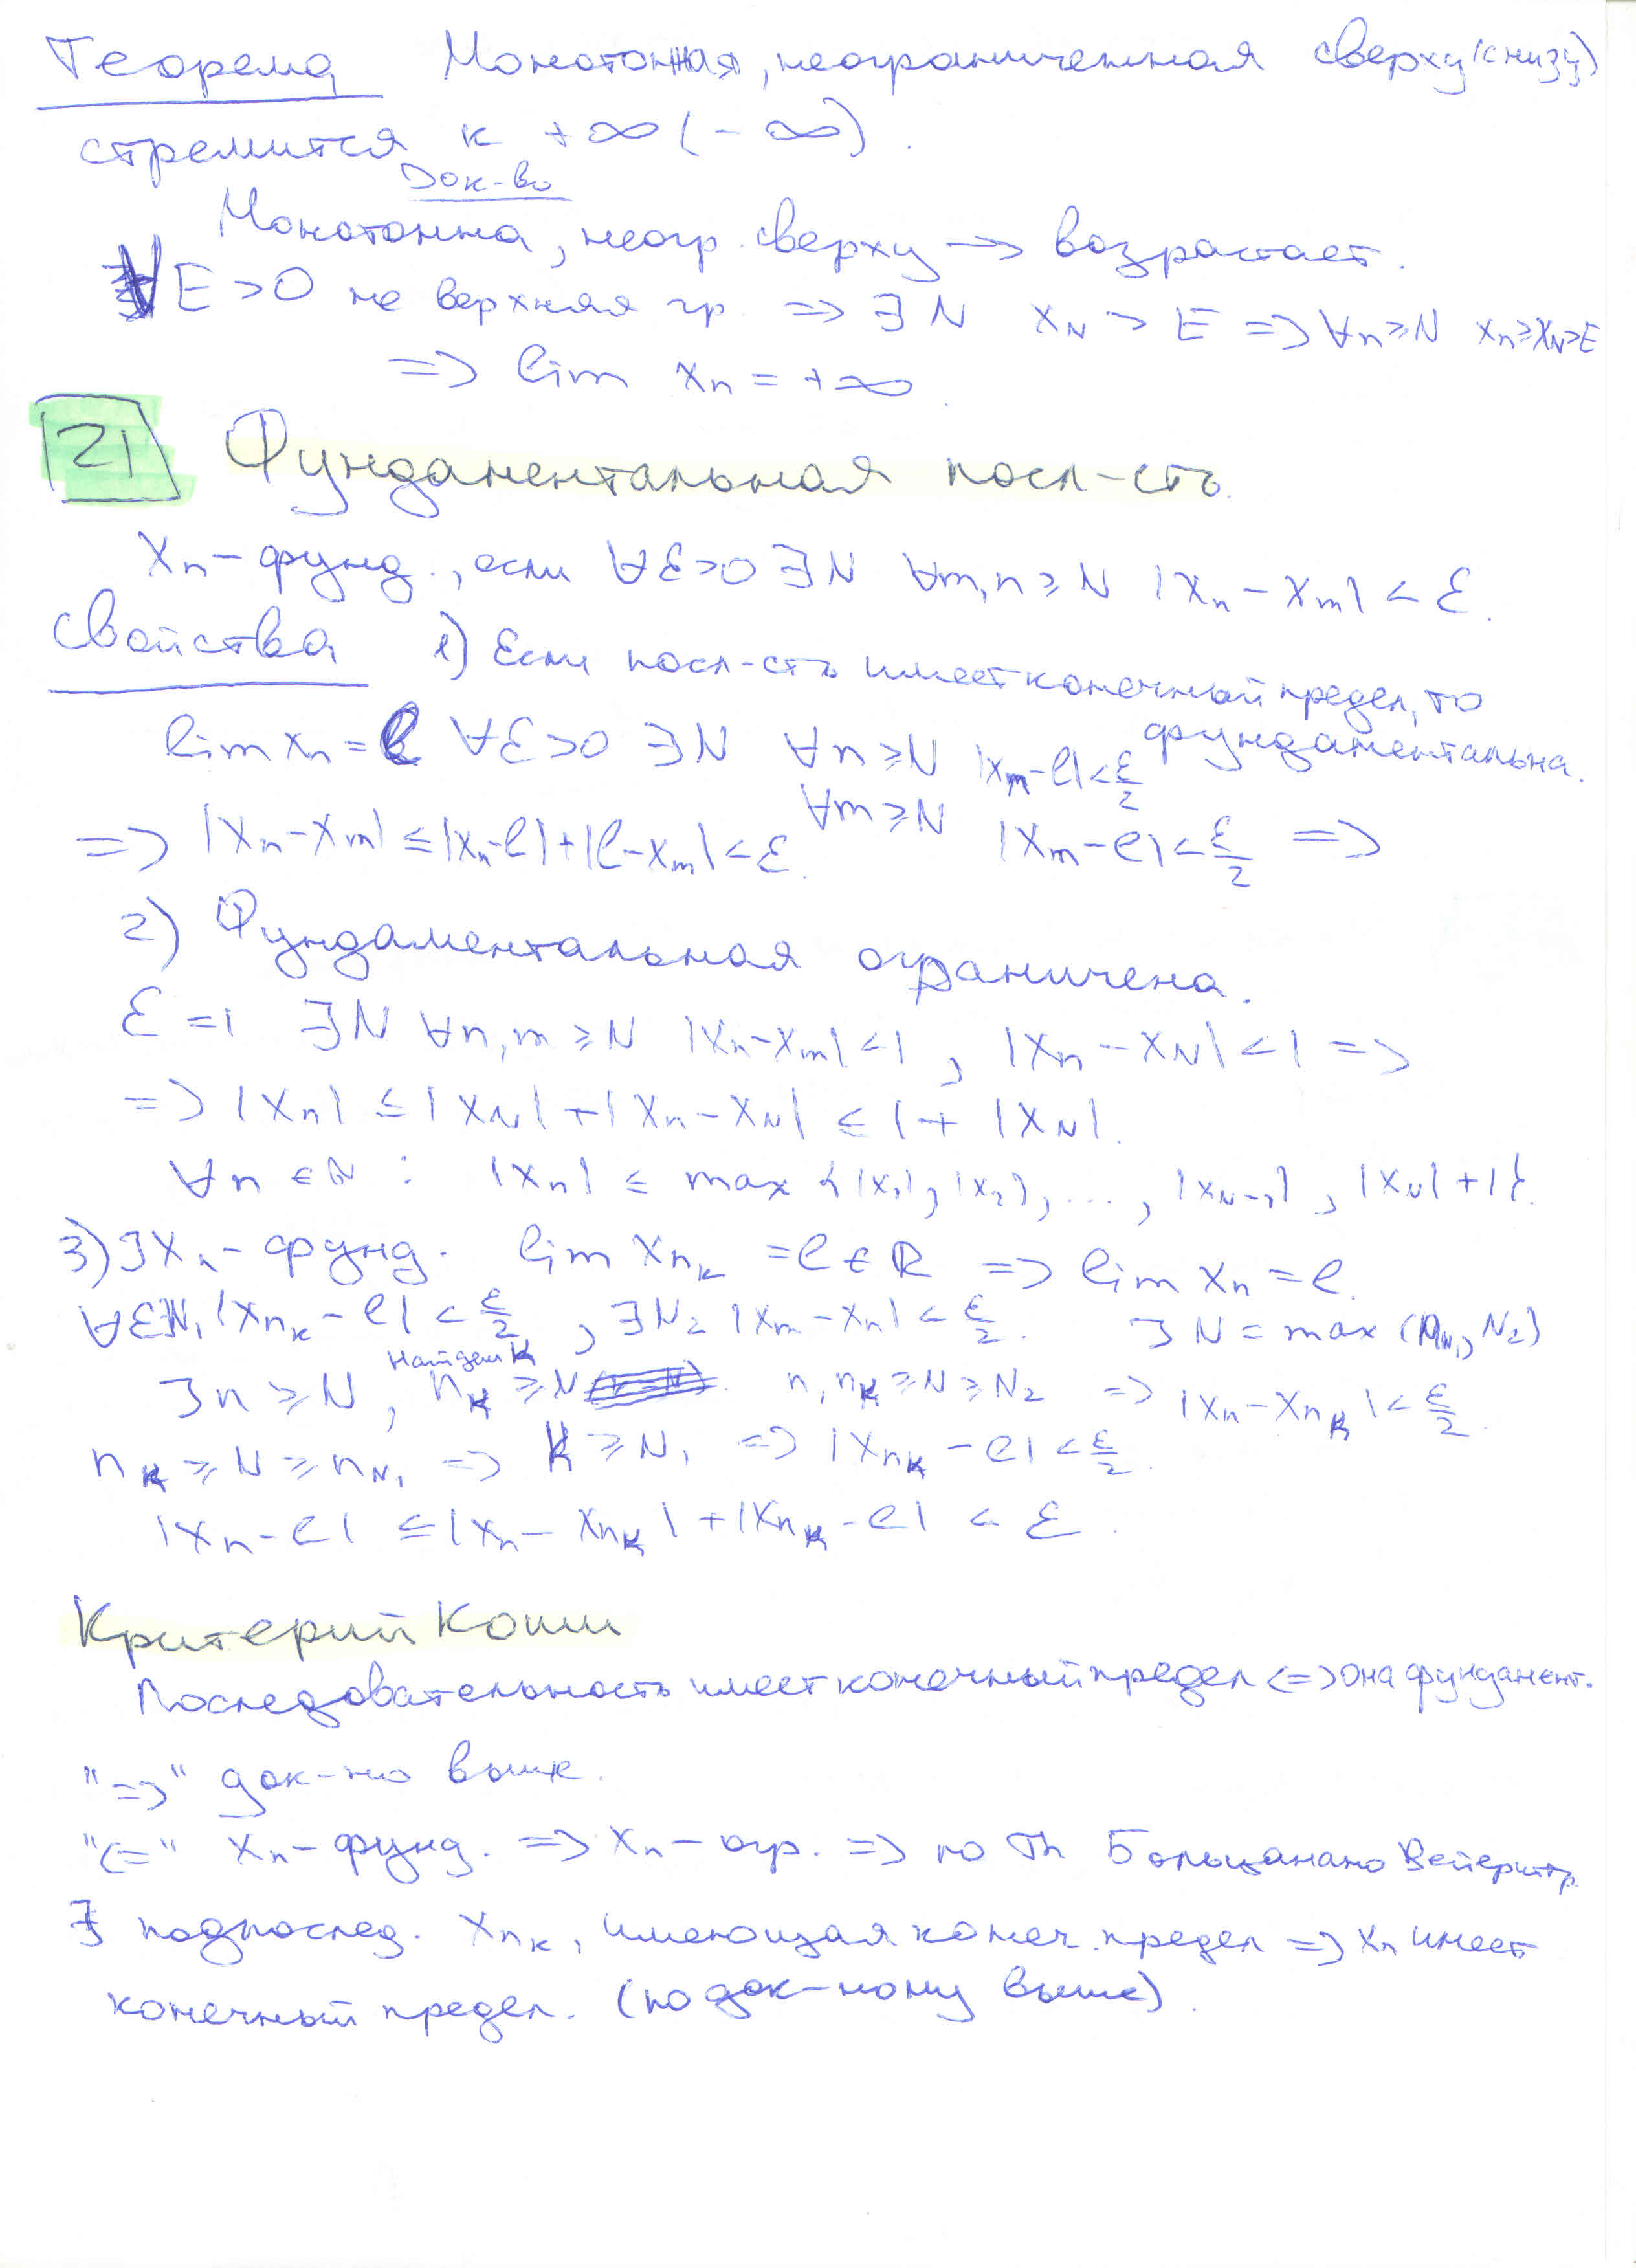 Теорема Монотонная, неограниченная сверху (снизу)
стремится к +∞ (-∞).
Док-во
Монотонна, неогр. сверху → возрастает.
∀E>0 не верхняя гр. => ∃N x_N > E => ∀n≥N x_n≥x_N>E
=> lim x_n = +∞.
21 Фундаментальная посл-сть.
x_n - фунд., если ∀ε>0 ∃N ∀m,n ≥ N |x_n - x_m| < ε.
Свойства 1) Если посл-сть имеет конечный предел, то
фундаментальна.
lim x_n = l ∀ε>0 ∃N ∀n ≥ N |x_m - l| < ε/2
∀m ≥ N |x_m - l| < ε/2 =>
=> |x_n - x_m| ≤ |x_n - l| + |l - x_m| < ε.
2) Фундаментальная ограничена.
ε = 1 ∃N ∀n,m ≥ N |x_n - x_m| < 1, |x_n - x_N| < 1 =>
=> |x_n| ≤ |x_N| + |x_n - x_N| ≤ 1 + |x_N|.
∀n ∈ N : |x_n| ≤ max {|x_1|, |x_2|, ..., |x_{N-1}|, |x_N| + 1}.
3) ∃ x_n - фунд. lim x_{n_k} = l ∈ R => lim x_n = l.
∀ε ∃N_1 |x_{n_k} - l| < ε/2, ∃N_2 |x_m - x_n| < ε/2. ∃ N = max (n_{N_1}, N_2)
найдем k
∃ n ≥ N, n_k ≥ N n, n_k ≥ N ≥ N_2 => |x_n - x_{n_k}| < ε/2.
n_k ≥ N ≥ n_{N_1} => k ≥ N_1 => |x_{n_k} - l| < ε/2.
|x_n - l| ≤ |x_n - x_{n_k}| + |x_{n_k} - l| < ε.
Критерий Коши
Последовательность имеет конечный предел <=> она фундамент.
"=>" док-но выше.
"<=" x_n - фунд. => x_n - огр. => по Th Больцанано Вейерштр.
∃ подпослед. x_{n_k}, имеющая конеч. предел => x_n имеет
конечный предел. (по док-ному выше).